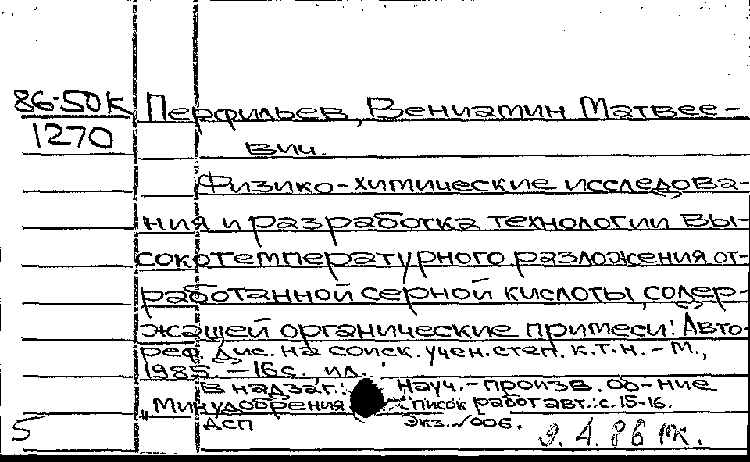 86-50К Перфильев, Вениамин Матвее-
1270 вич.
Физико-химические исследова-
ния и разработка технологии вы-
сокотемпературного разложения от-
работанной серной кислоты, содер-
жащей органические примеси: Авто-
реф. дис. на соиск. учен. степ. к.т.н. - М.,
1985. - 16 с. ил.
В надзаг.: Науч.-произв. об-ние
"Минудобрения". Список работ авт.: с. 15-16.
ДСП Экз. №006.
5 9.4.86